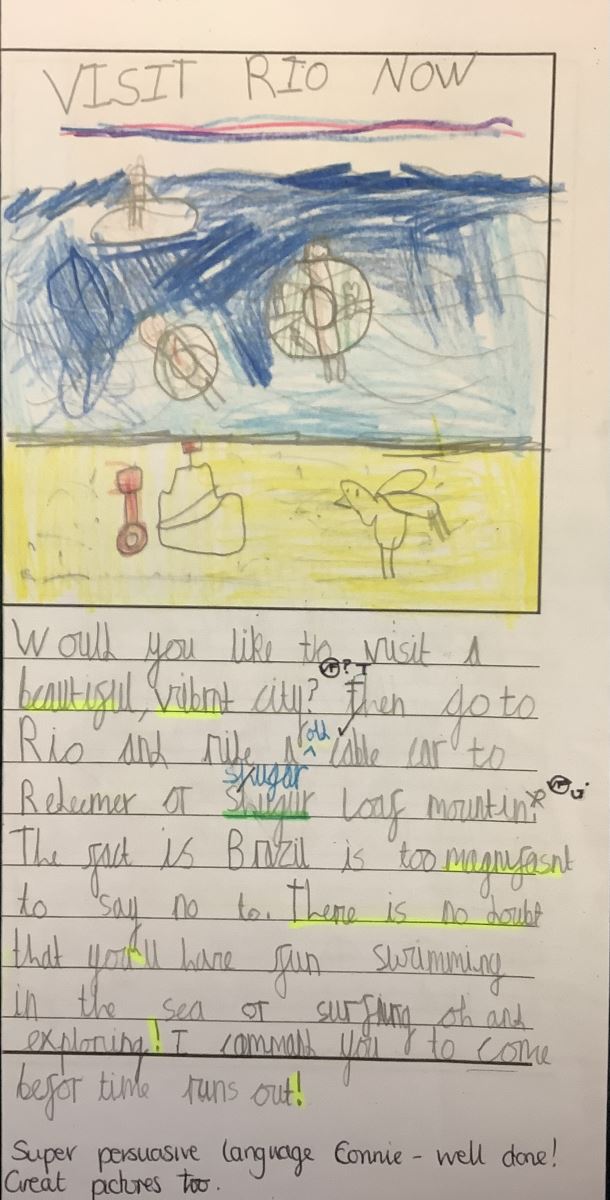 VISIT RIO NOW
Would you like to visit a
beautiful, vibrnt city? Then go to
Rio and ride a old cable car to
shugar
Redeemer or Shugur loaf mountin.
The fact is Brazil is too magnifasnt
to say no to. There is no doubt
that you'll have fun swimming
in the sea or surfing oh and
exploring! I command you to come
befor time runs out!
Super persuasive language Connie - well done!
Great pictures too.